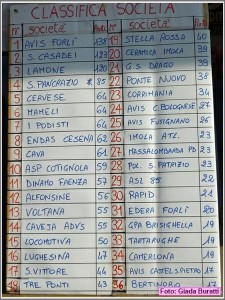 CLASSIFICA SOCIETA'
N° società Punti N° società Punti
1 AVIS FORLI' 138 19 STELLA ROSSA 40
2 S. CASADEI 123 20 CERAMICA IMOLA 39
3 LAMONE 120 21 G.S. DRAGO 39
4 S. PANCRAZIO 85 22 PONTE NUOVO 38
5 CERVESE 64 23 CORRIMANIA
6 MAMELI 64 24 AVIS C. BOLOGNESE 27
7 I PODISTI 64 25 AVIS FUSIGNANO 26
8 ENDAS CESENA 62 26 IMOLA ATL. 23
9 CAVA 61 27 MASSALOMBARDA PD 23
10 ASP COTIGNOLA 59 28 POL. S. PATRIZIO 23
11 DINAMO FAENZA 57 29 ASL 85 22
12 ALFONSINE 56 30 RAPID 21
13 VOLTANA 55 31 EDERA FORLI 20
14 CAVEJA ADVS 55 32 GPA BRISIGHELLA 19
15 LOCOMOTIVA 50 33 TARTARUGHE 19
16 LUGHESINA 47 34 CAMERLONA 19
17 S. VITTORE 44 35 AVIS CASTEL S. PIETRO 17
18 TRE PONTI 43 36 BERTINORO 17
Foto: Giada Buratti